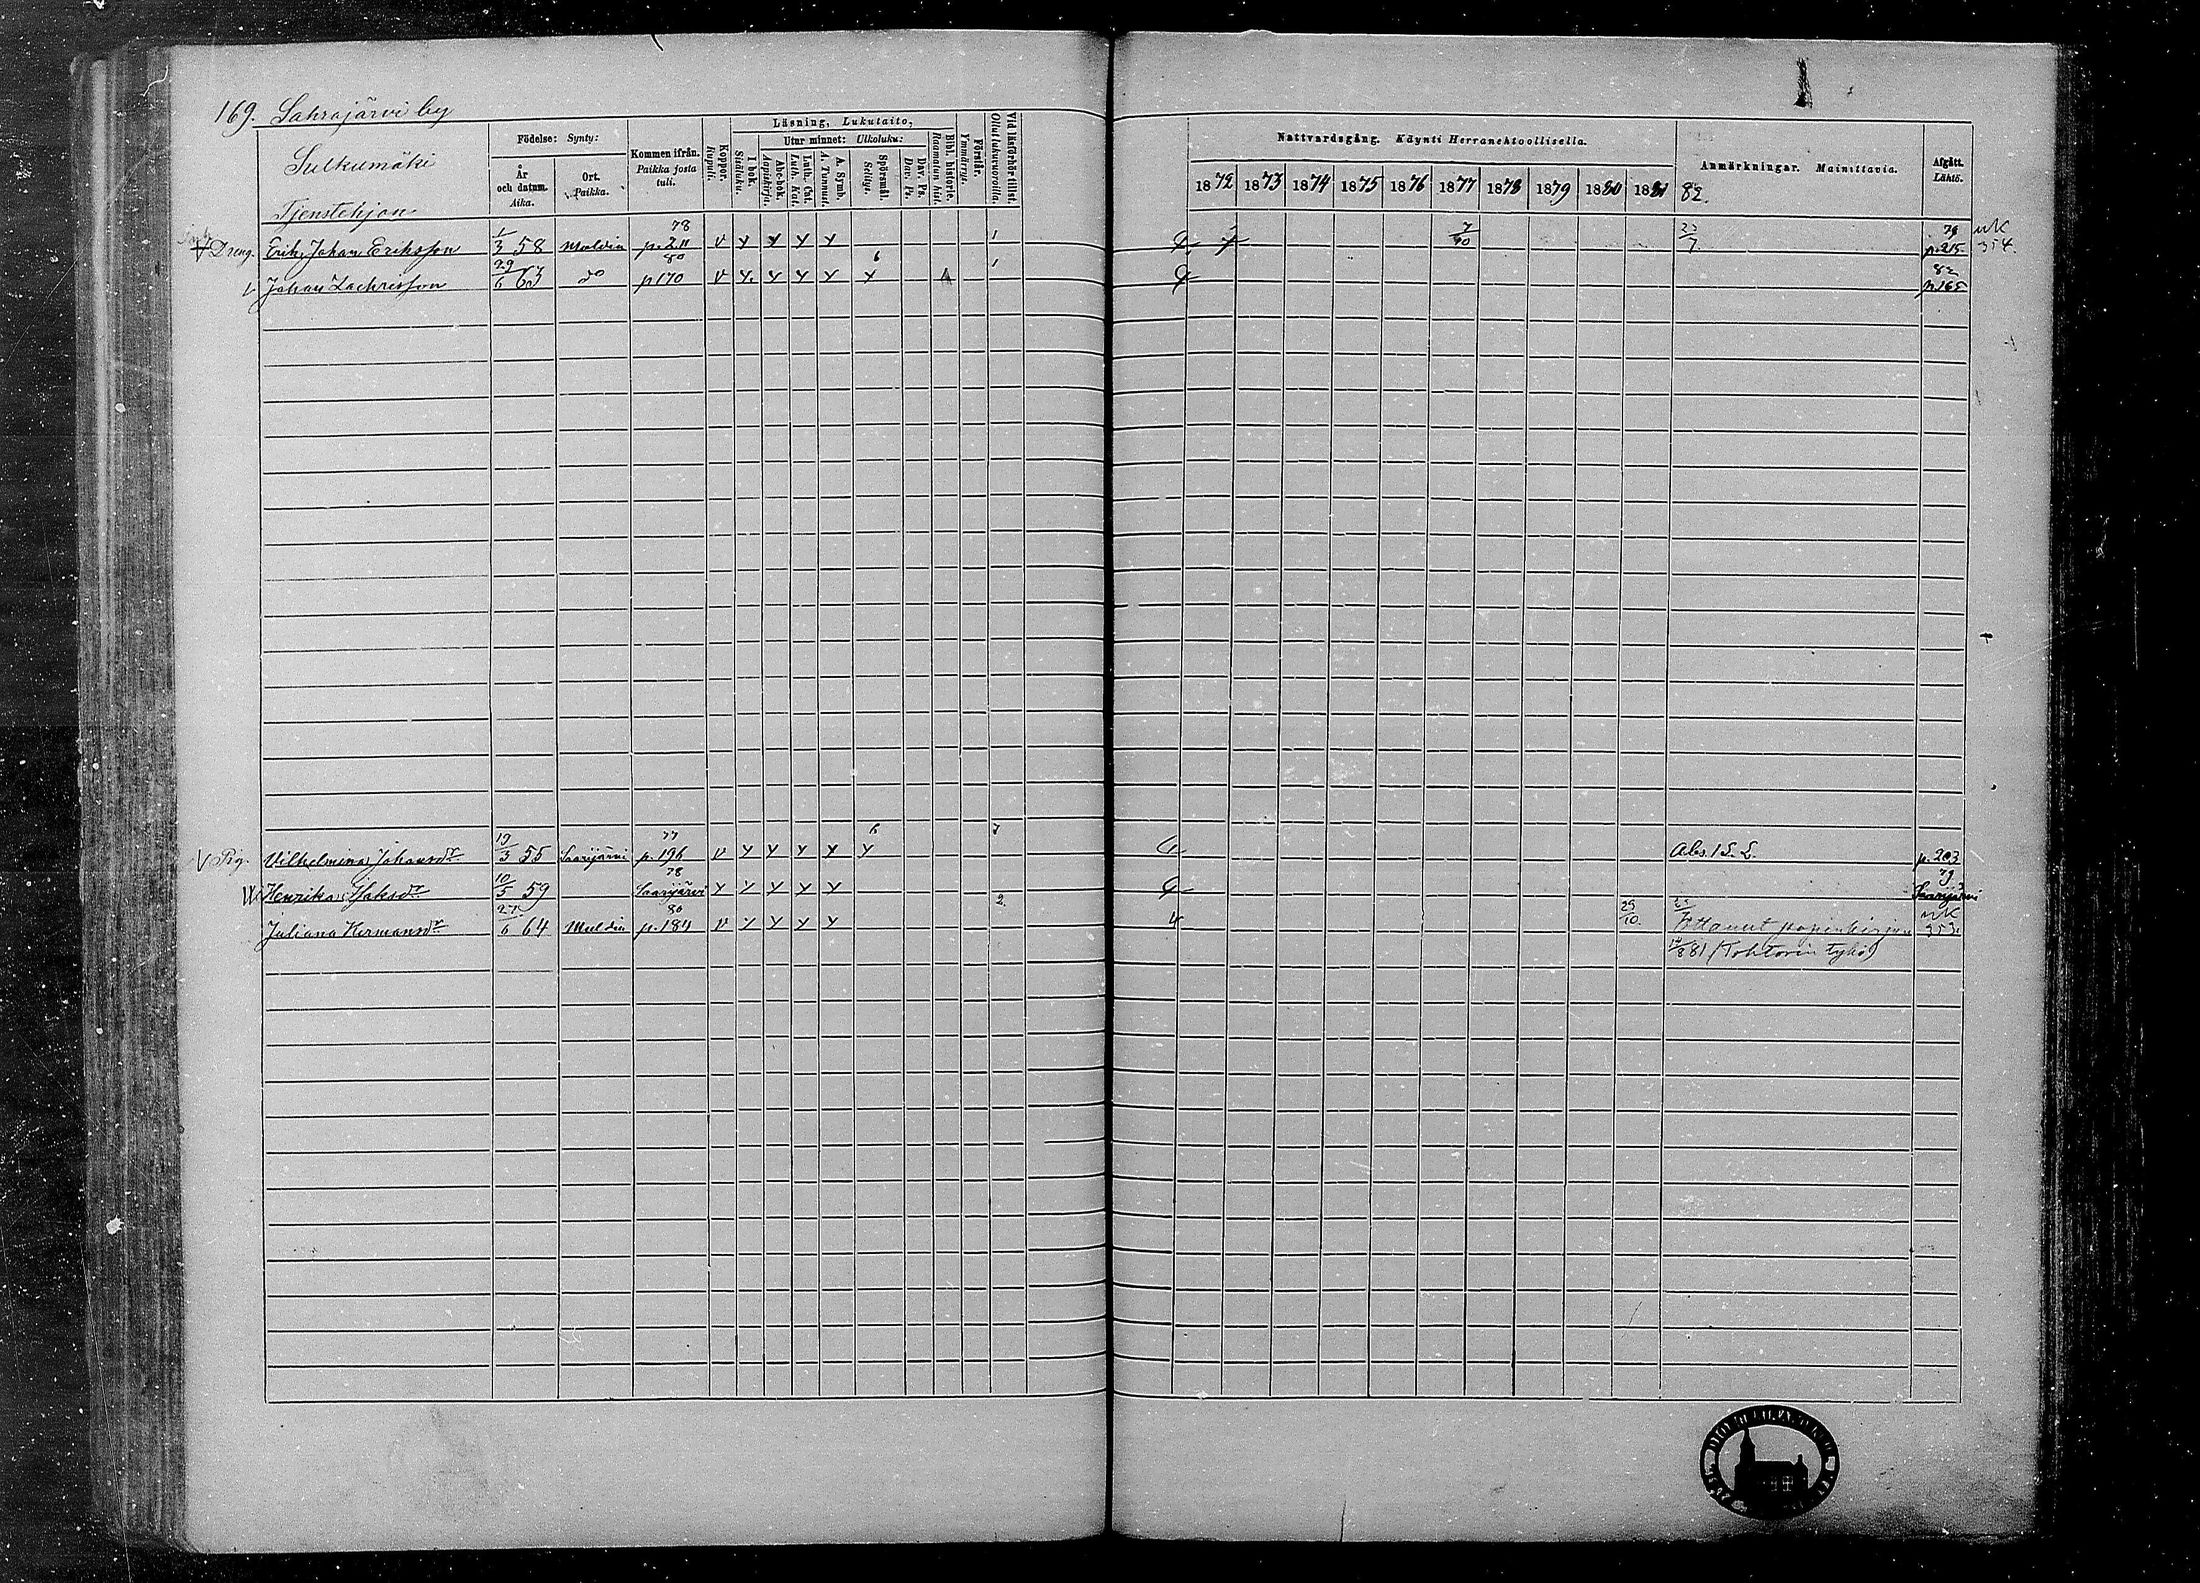 169. Sahrajärvi by
Sulkumäki
Tjenstehjon
Födelse: Synty:
År och datum. Aika.
Ort. Paikka.
Kommen ifrån. Paikka josta tuli.
Koppor. Rupuli.
Läsning, Lukutaito,
I bok. Sisäluku.
Utur minnet: Ulkoluku:
Abc-bok. Aapiskirja.
Luth. Cat. Luth. Kat.
A. Symb. A. Tunnust.
Spörsmål. Selitys.
Dav. Ps. Dav. Ps.
Bibl. historie. Raamatun hist.
Förstår. Ymmärrys.
Vid läsförhör tillst. Ollut lukuvuoroilla.
Nattvardsgång. Käynti Herranehtoollisella.
1872 1873 1874 1875 1876 1877 1878 1879 1880 1881
Anmärkningar. Mainittavia.
82.
Afgått. Lähtö.
V Dreng. Erik Johan Eriksson 1/3 58 Muldia 78 p. 211 v y y y y 1 7/10 23/7 79 p. 215 uK 354.
V Johan Zachrisson 29/6 63 do 80 p 170 v y. y y y y 6 1 82 p. 165
V Pig. Vilhelmina Johansdr 19/3 55 Saarijärvi 77 p. 196 v y y y y y 6 7 Abs. 1 S. L. p. 203
Henrika Jaksdr 10/5 59 78 Saarijärvi y y y y y 79 Saarijärvi
Juliana Hermansdr 27/6 64 Muldia 80 p. 184 v y y y y 2. 4 29/10. Ottanut papinkirjan uK 353.
881 (Tohtorin työ)